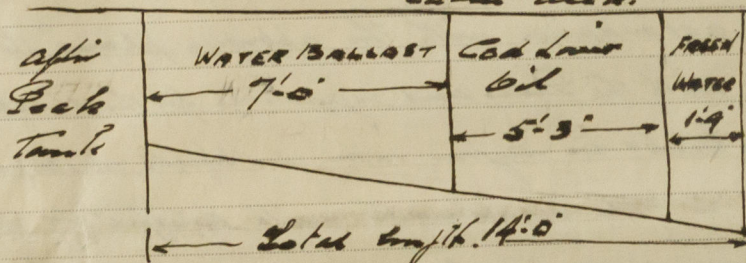 After
Peak
Tank
WATER BALLAST
7'-0"
Cod Liver
Oil
5'-3"
FRESH
WATER
1'-9"
Total length. 14'-0"